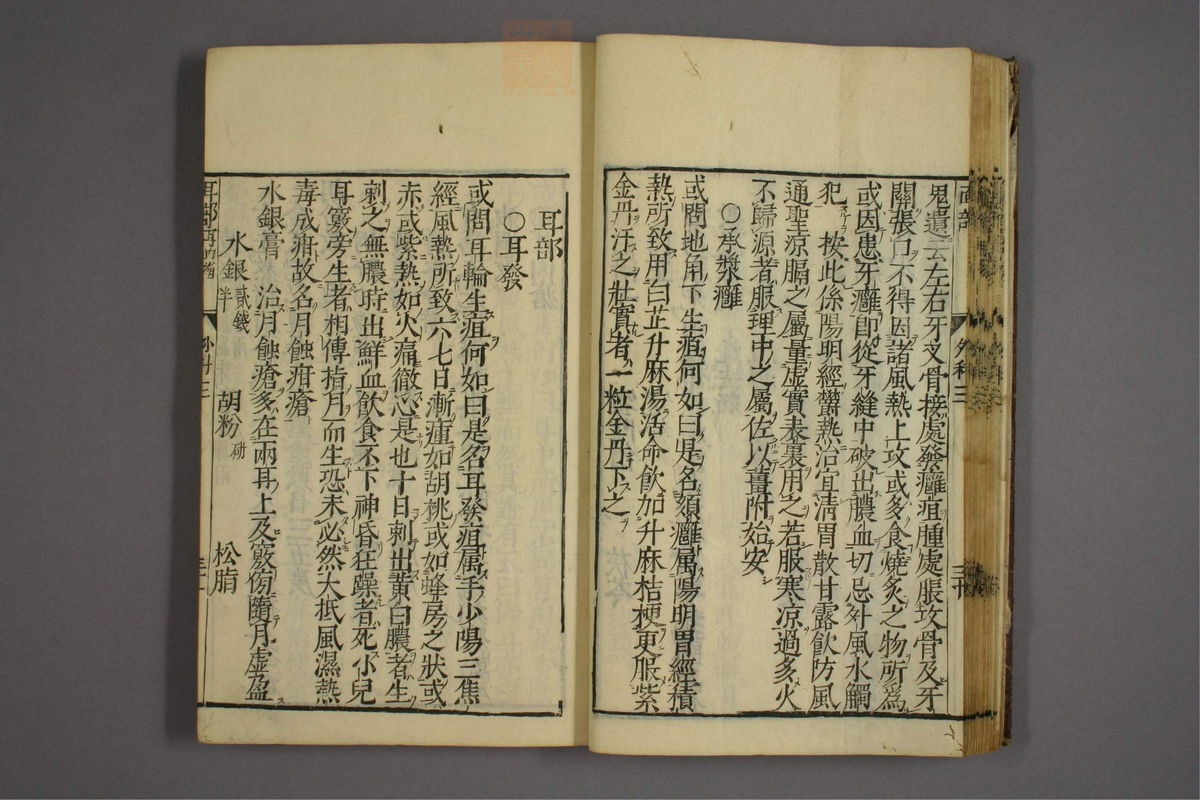 面部
外科三
三十
鬼遺云左右牙叉骨接處發癰疽腫處脹攻骨及牙
關張口不得因諸風熱上攻或多食燒炙之物所爲
或因患牙癰卽從牙縫中破出膿血切忌外風水觸
犯 按此係陽明經欝熱治宜淸胃散甘露飮防風
通聖凉膈之屬量虛實表裏用之若服寒凉過多火
不歸源者服理中之屬佐以薑附始安
○承漿癰
或問地角下生疽何如曰是名頦癰属陽明胃經積
熱所致用白芷升麻湯活命飮加升麻桔梗更服紫
金丹汗之壯實者一粒金丹下之
耳部
○耳發
或問耳輪生疽何如曰是名耳發疽属手少陽三焦
經風熱所致六七日漸瘇如胡桃或如蜂房之狀或
赤或紫熱如火痛徹心是也十日刺出黃白膿者生
刺之無膿時出鮮血飮食不下神昏狂躁者死小兒
耳竅旁生者相傳指月而生恐未必然大抵風濕熱
毒成疳故名月蝕疳瘡
水銀膏 治月蝕瘡多在兩耳上及竅傍隨月虛盈
水銀貳錢半 胡粉研 松脂
耳部